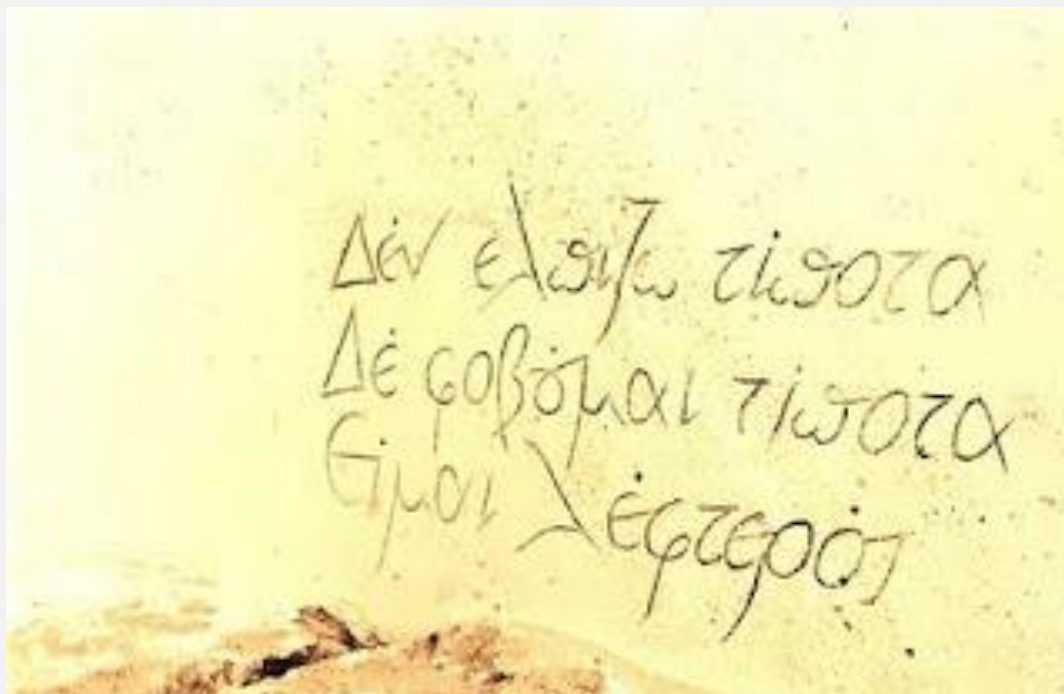 Δέν ελπιζω τίποτα
Δέ φοβόμαι τίποτα
Είμαι λέφτερός